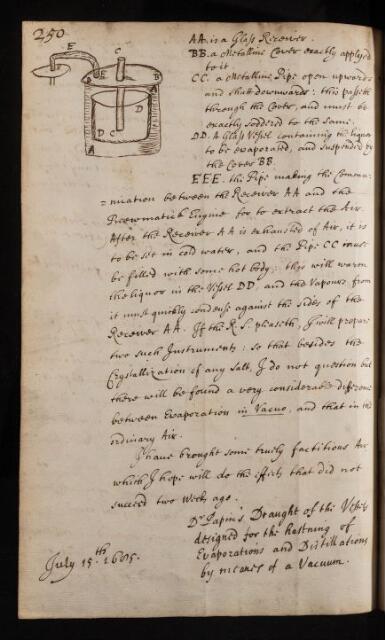 250
E
C
E
B
B
A
A
D
D
D C
A
AA. is a Glass Receiver.
BB. a Metalline Cover exactly applyed
to it.
CC. a Metalline Pipe open upwards
and shutt downwards: this passeth
through the Cover, and must be
exactly sodderd to the same.
DD. A Glass Vessel containing the liquor
to be evaporated, and suspended by
the Cover BB.
EEE. the Pipe making the Commu=
=nication between the Receiver AA and the
Pneewmatick Engine for to extract the Air.
After the Receiver AA is exhausted of Air, it is
to be set in cold water, and the Pipe CC must
be filled with some hot body: this will warm
the liquor in the Vessel DD, and the Vapours from
it must quickly condense against the sides of the
Receiver AA. If the R.S. pleaseth, I will prepare
two such Instruments: so that besides the
Crystallization of any Salt, I do not question but
there will be found a very considerable difference
between Evaporation in Vacuo, and that in the
ordinary Air.
I have brought some truly factitious Air
which I hope will do the effects that did not
succeed two Weeks ago.
Dr. Papin's Draught of the Vessels
designed for the hastning of
Evaporations and Distillations
by meanes of a Vacuum.
July 15.th 1685.